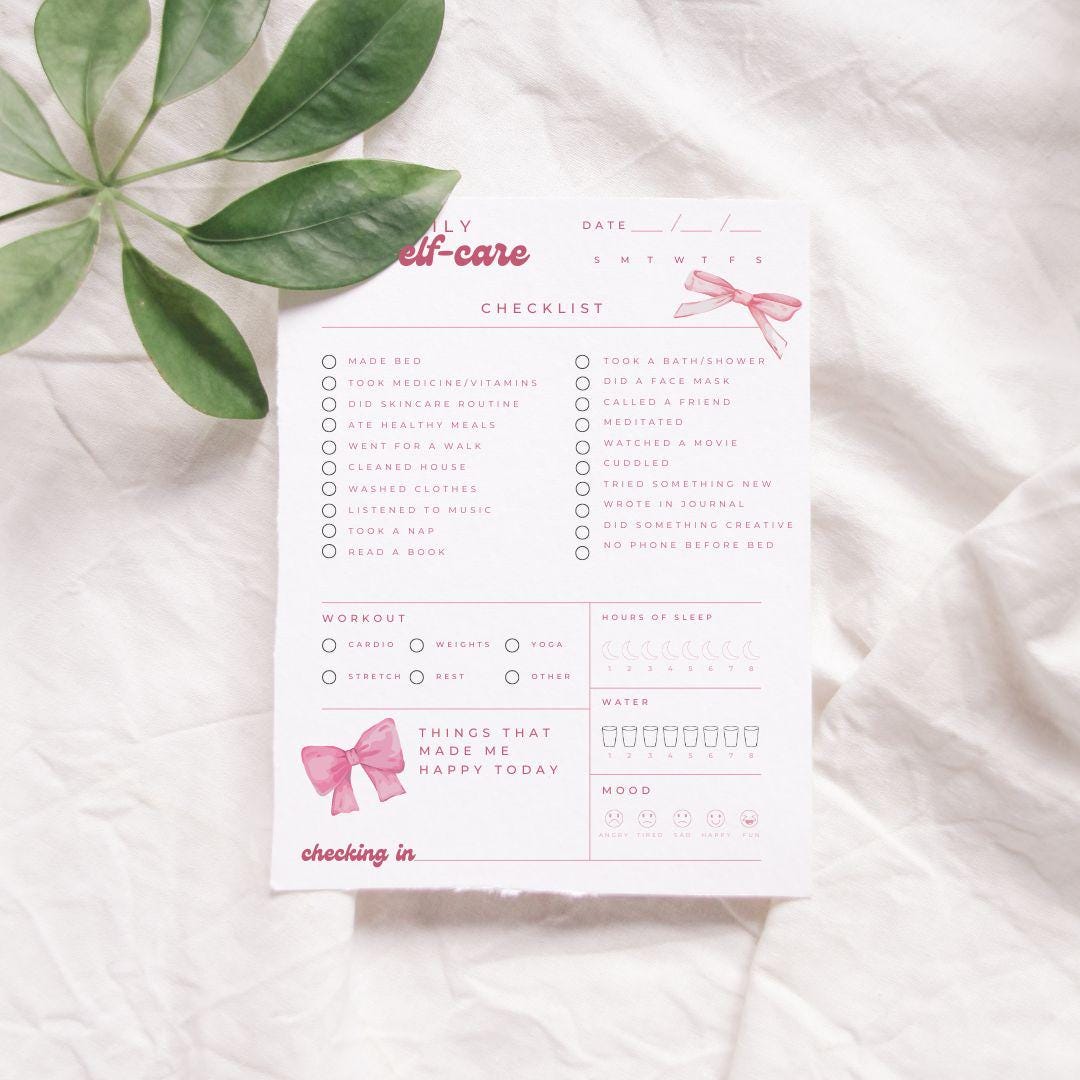 ILY
elf-care
DATE___ /___ /___
S M T W T F S
CHECKLIST
MADE BED
TOOK MEDICINE/VITAMINS
DID SKINCARE ROUTINE
ATE HEALTHY MEALS
WENT FOR A WALK
CLEANED HOUSE
WASHED CLOTHES
LISTENED TO MUSIC
TOOK A NAP
READ A BOOK
TOOK A BATH/SHOWER
DID A FACE MASK
CALLED A FRIEND
MEDITATED
WATCHED A MOVIE
CUDDLED
TRIED SOMETHING NEW
WROTE IN JOURNAL
DID SOMETHING CREATIVE
NO PHONE BEFORE BED
WORKOUT
CARDIO WEIGHTS YOGA
STRETCH REST OTHER
THINGS THAT
MADE ME
HAPPY TODAY
checking in
HOURS OF SLEEP
1 2 3 4 5 6 7 8
WATER
1 2 3 4 5 6 7 8
MOOD
ANGRY TIRED SAD HAPPY FUN